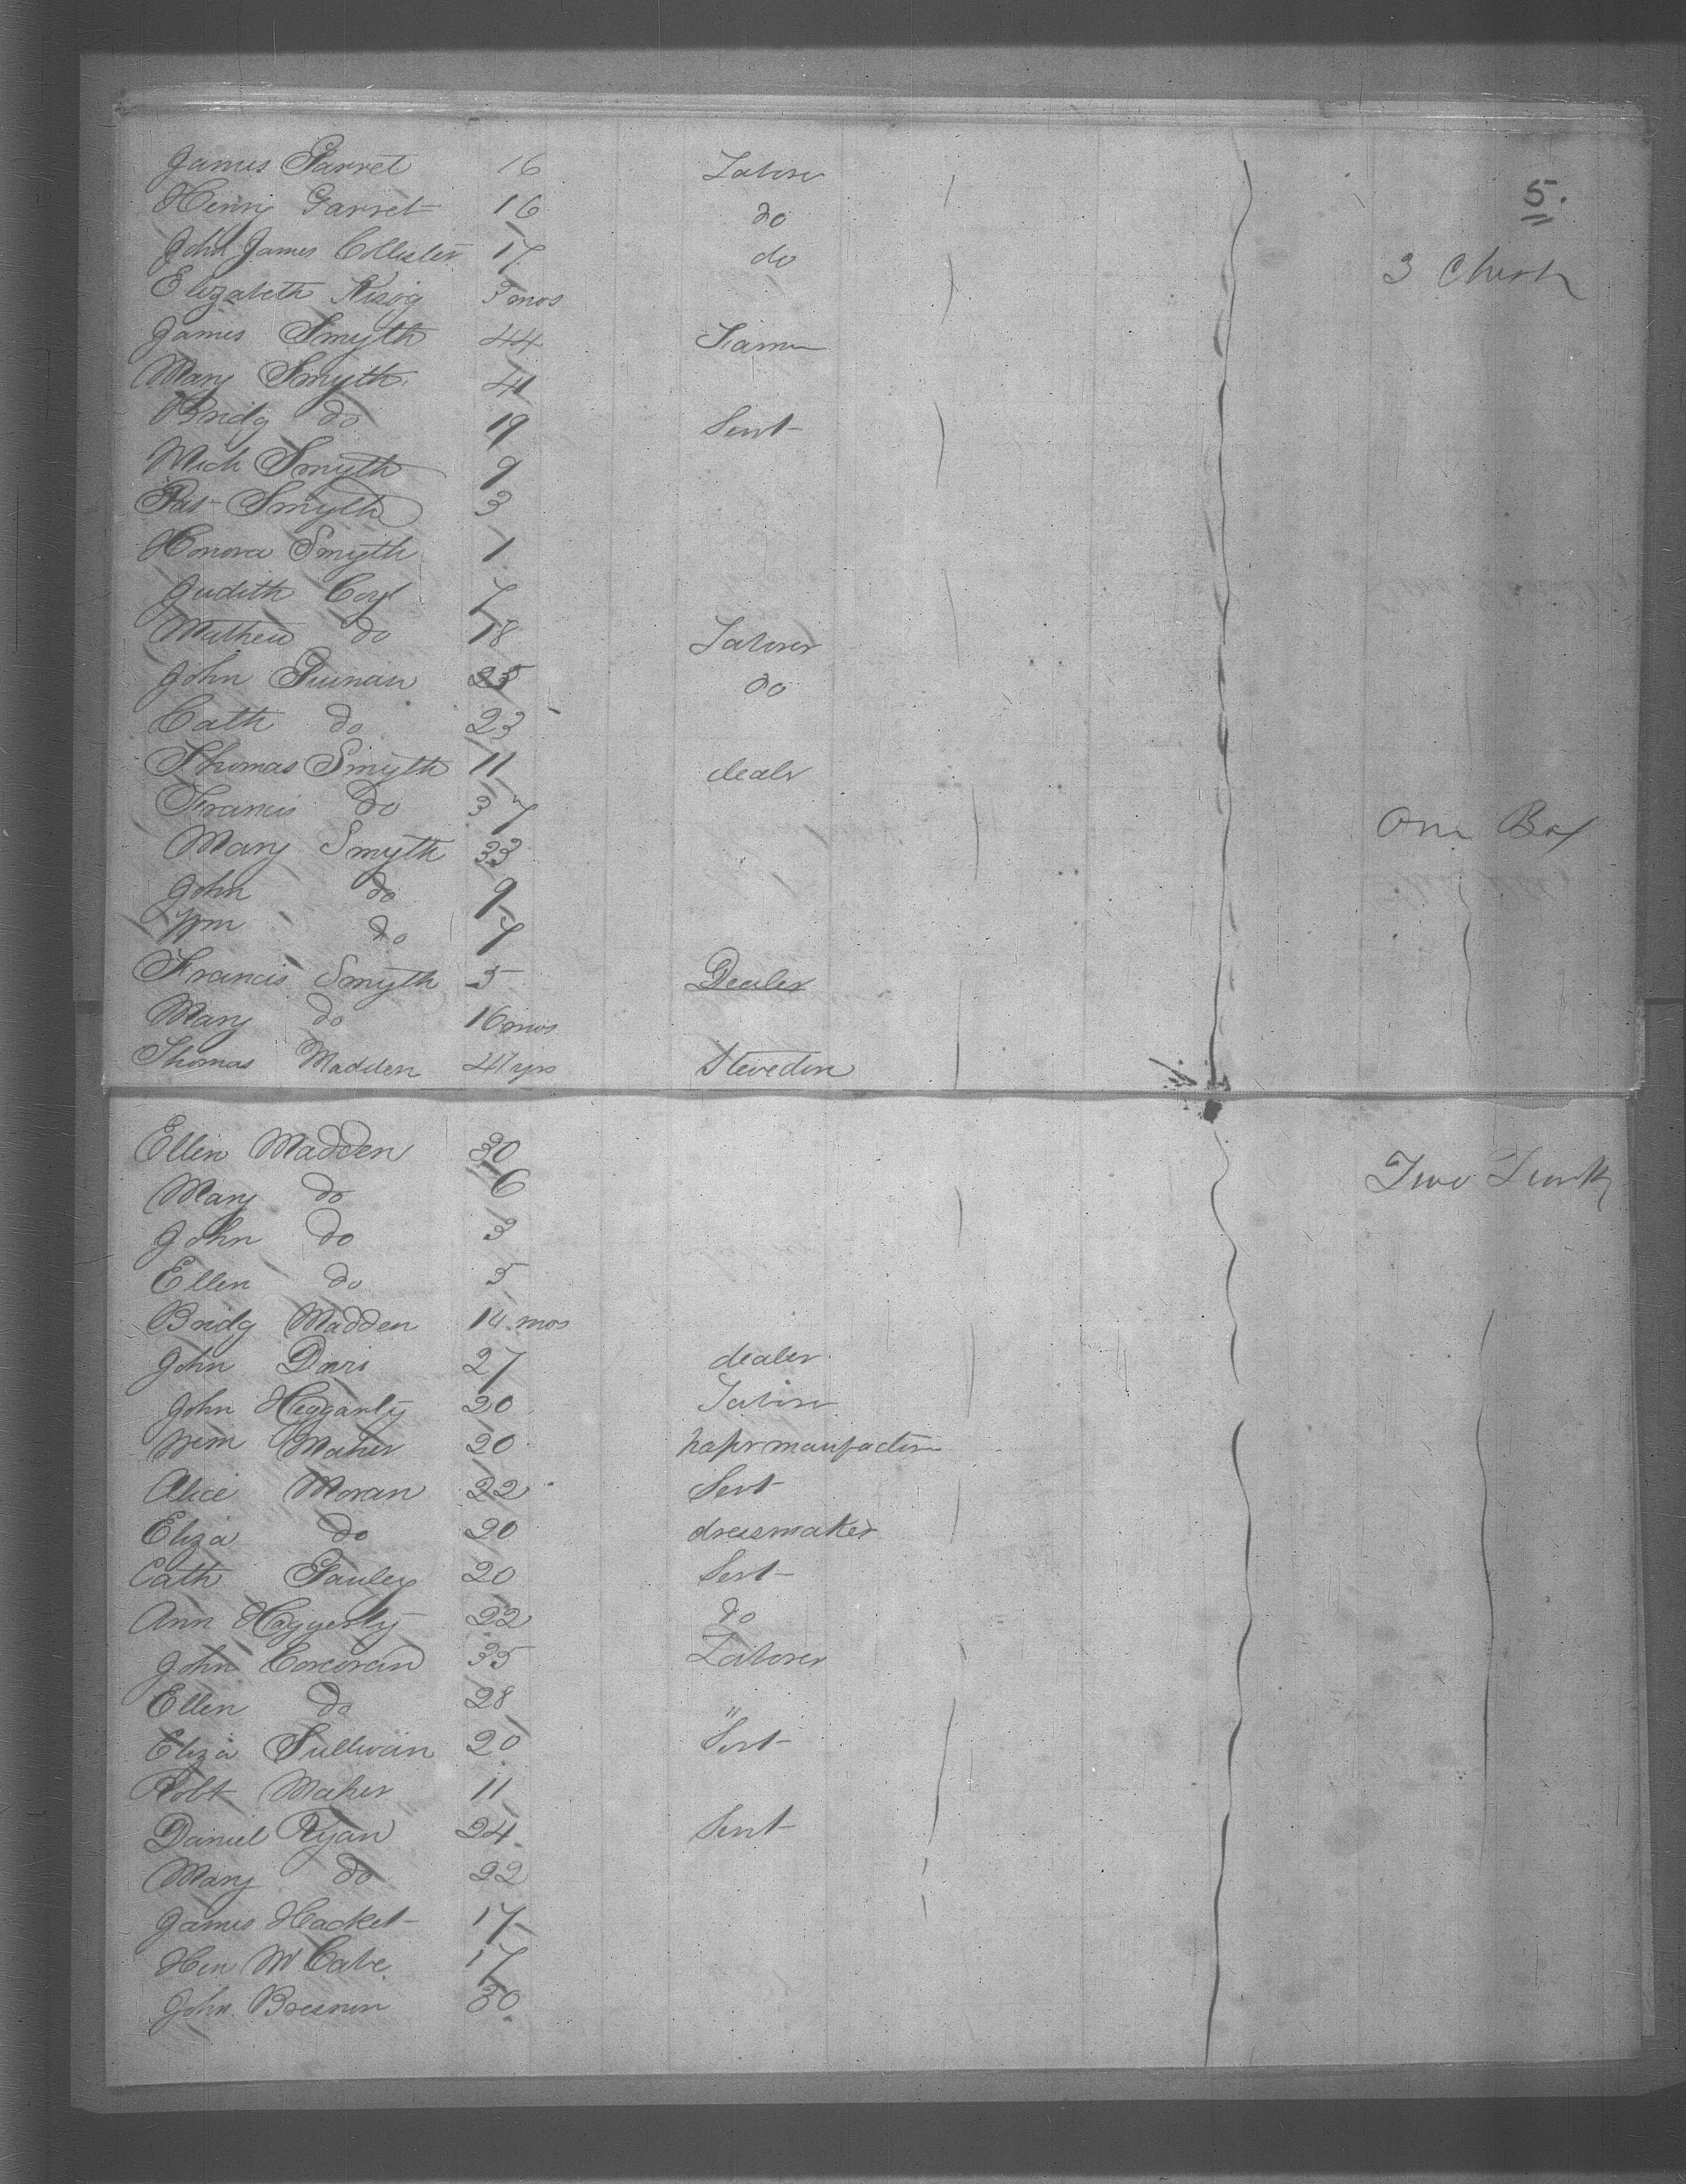 James Garret 16 Laborer
5.
Henry Garret 16 do
John James Collister 17 do 3 Chests
Elizabeth 5 mos
James Smyth 44 Farmer
Mary Smyth 41
Bridg do 19 Servt
Mich Smyth 9
Pat Smyth 3
Honora Smyth 1
Judith Coyl 7
Mathew do 18 Laborer
John 25 do
Cath do 23
Thomas Smyth 11 dealer
Francis do 37 One Box
Mary Smyth 33
John do 9
Wm do 7
Francis Smyth 5 Dealer
Mary do 16 mos
Thomas Madden 41 yrs Stevedore
Ellen Madden 30 Two Trunks
Mary do 6
John do 3
Ellen do 5
Bridg Madden 14 mos
John Davis 27 dealer
John Heggarty 20 Laborer
Wm Maher 20 paper manufacturer
Alice Moran 22 Servt
Eliza do 20 dressmaker
Cath 20 Servt
Ann Haggerty 22 do
John Corcoran 35 Laborer
Ellen do 28 "
Eliza Sullivan 20 Servt
Robt Maher 11
Daniel Ryan 24 Servt
Mary do 22
James Hacket 17
Hen McCabe 17
John Bresnin 30